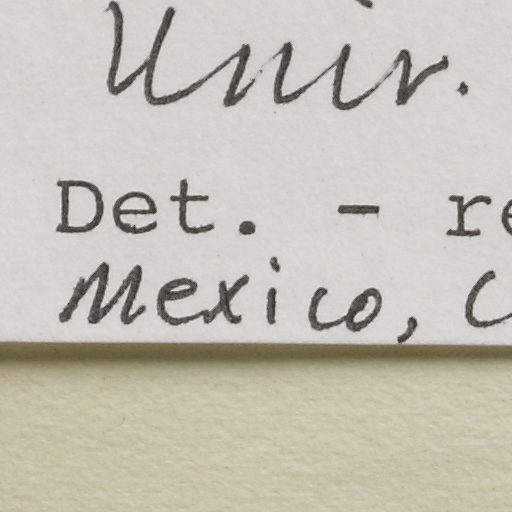 Univ.
Det. - re
Mexico, C